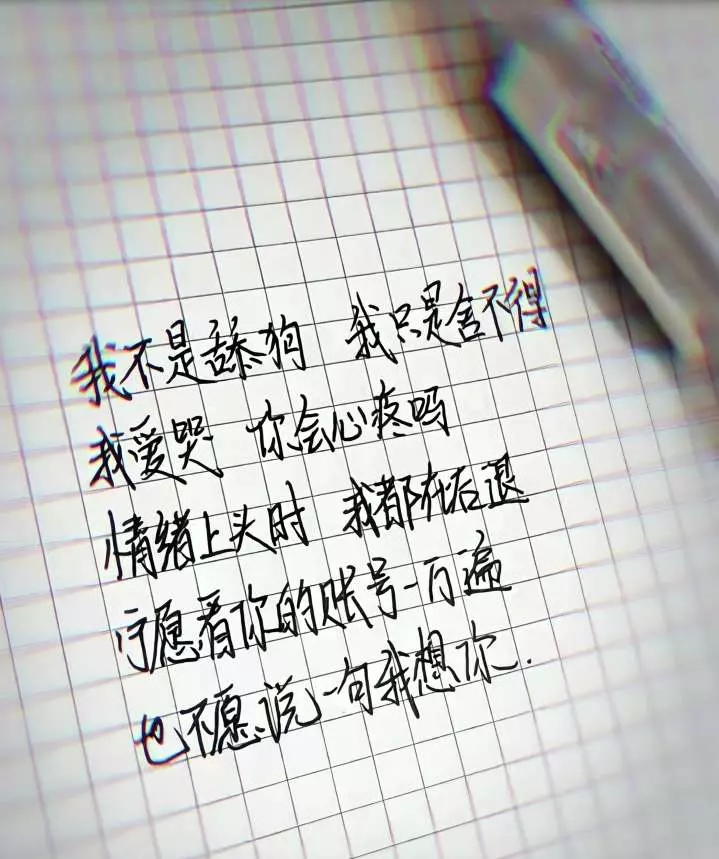 我不是舔狗 我只是舍不得
我爱哭 你会心疼吗
情绪上头时 我都在后退
宁愿看你的账号一万遍
也不愿说一句我想你.